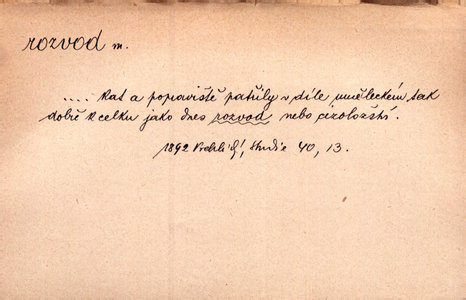 rozvod m.
.... Kat a popraviště patřily v díle uměleckém tak
dobře k celku jako dnes rozvod nebo cizoložství.
1892 Vrchlický, Studie 40, 13.